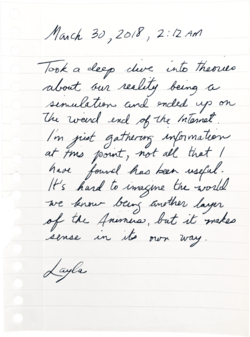 March 30, 2018, 2:12 AM
Took a deep dive into theories
about our reality being a
simulation and ended up on
the weird end of the Internet.
I'm just gathering information
at this point, not all that I
have found has been useful.
It's hard to imagine the world
we know being another layer
of the Animus, but it makes
sense in its own way.
Layla